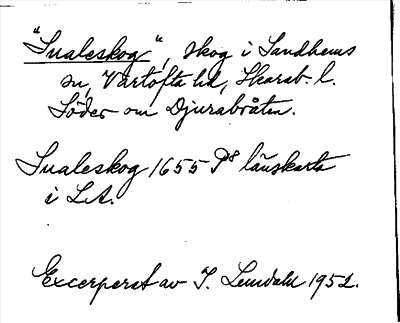 "Sualeskog", skog i Sandhems
sn, Vartofta hd, Skarab. l.
Söder om Djurabråten.
Sualeskog 1655 P8 länskarta
i LA.
Excerperat av I. Lundahl 1952.